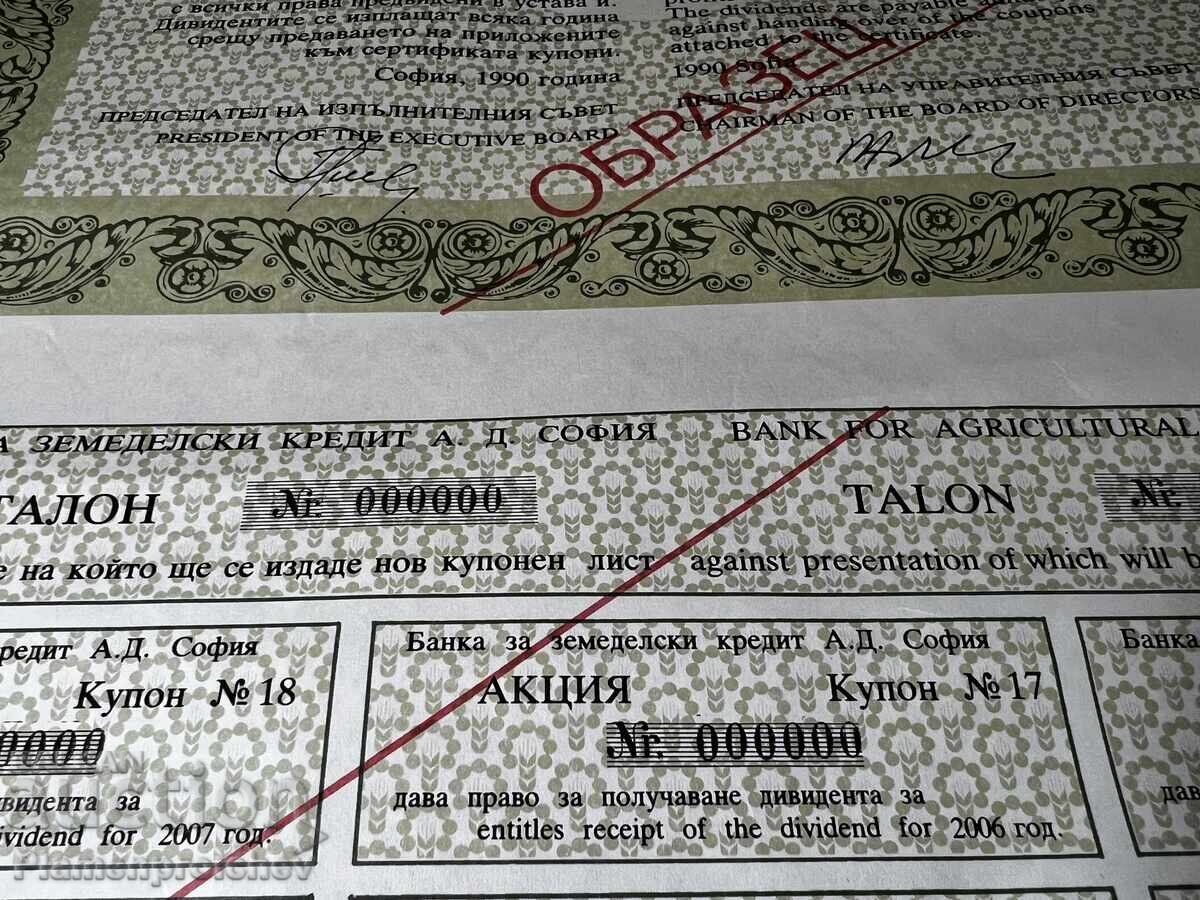 с всички права предвидени в устава й.
Дивидентите се изплащат всяка година
срещу предаването на приложените
към сертификата купони.
София, 1990 година
ПРЕДСЕДАТЕЛ НА ИЗПЪЛНИТЕЛНИЯ СЪВЕТ
PRESIDENT OF THE EXECUTIVE BOARD
The dividends are payable
against handing over of the coupons
attached to the certificate.
1990 Sofia
ПРЕДСЕДАТЕЛ НА УПРАВИТЕЛНИЯ СЪВЕТ
CHAIRMAN OF THE BOARD OF DIRECTORS
ОБРАЗЕЦ
А ЗЕМЕДЕЛСКИ КРЕДИТ А. Д. СОФИЯ BANK FOR AGRICULTURAL
ТАЛОН Nr. 000000 TALON Nr.
е на който ще се издаде нов купонен лист against presentation of which will b
редит А.Д. София
Купон №18
0000
ивидента за
dividend for 2007 год.
Банка за земеделски кредит А.Д. София
АКЦИЯ Купон №17
Nr. 000000
дава право за получаване дивидента за
entitles receipt of the dividend for 2006 год.
Банка
дав
auction
Plamenprotehev